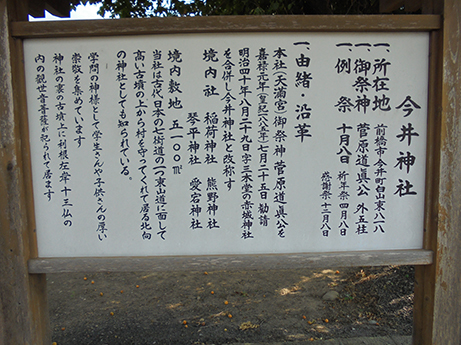 今井神社
一、所在地 前橋市今井町白山東八一八
一、御祭神 菅原道眞公 外五柱
一、例祭 十月八日 祈年祭四月八日
感謝祭十二月八日
一、由緒・沿革
本社(天満宮)御祭神 菅原道眞公を
嘉禄元年(皇紀一八八五年)七月二十五日 勧請
明治四十年八月二十九日字三本堂の赤城神社
を合併し今井神社と改称す
境内社 稲荷神社 熊野神社
琴平神社 愛宕神社
境内敷地 五一〇〇㎡
当社は古代日本の七街道の一つ東山道に面して
高い古墳の上から村を守ってくれて居る北向
の神社としても知られている。
学問の神様として学生さんや子供さんの厚い
崇敬を集めています
神社の裏の古墳上に利根左岸十三仏の
内の観世音菩薩が祀られて居ます